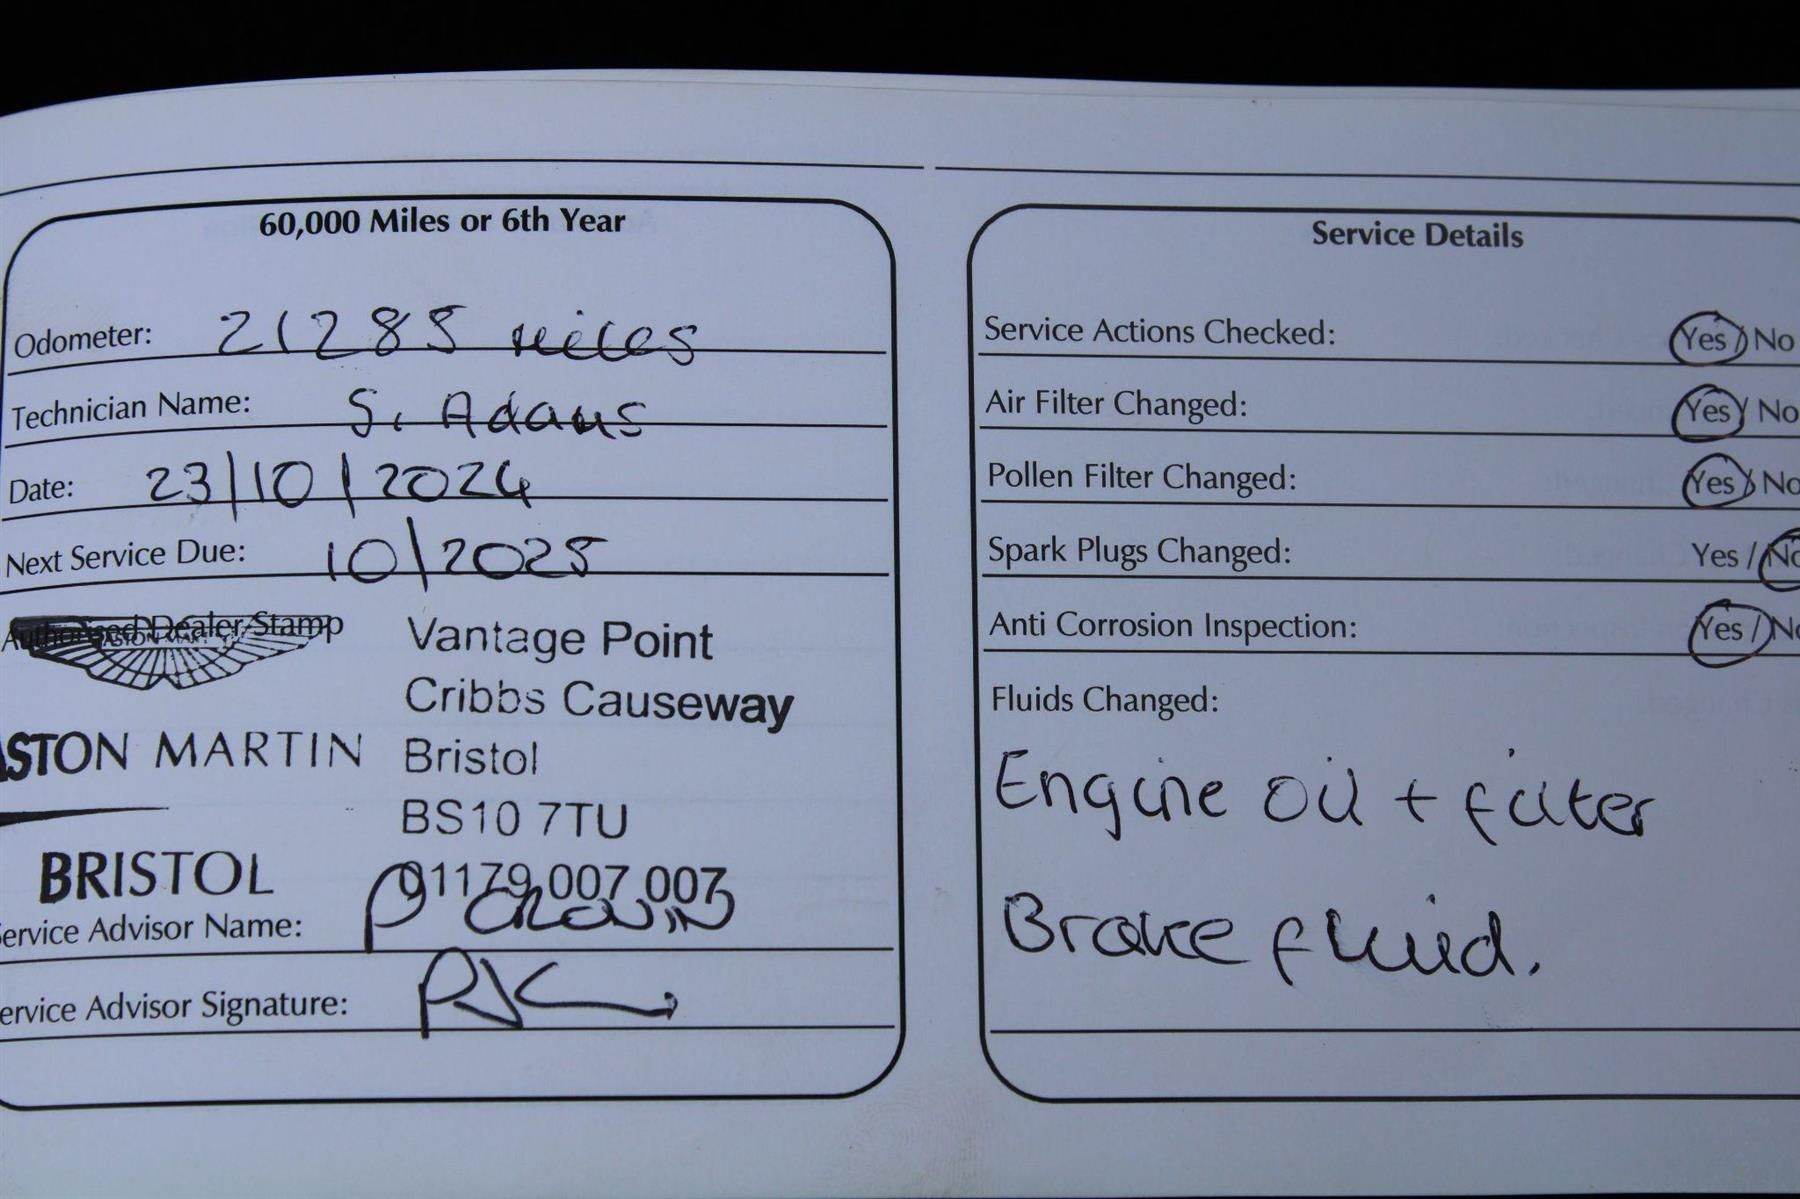 60,000 Miles or 6th Year
Odometer: 21285 miles
Technician Name: S. Adams
Date: 23/10/2024
Next Service Due: 10/2025
Authorised Dealer Stamp
ASTON MARTIN
Vantage Point
Cribbs Causeway
STON MARTIN Bristol
BS10 7TU
BRISTOL 01179 007 007
ervice Advisor Name: P CRONIN
ervice Advisor Signature:
Service Details
Service Actions Checked: Yes / No
Air Filter Changed: Yes / No
Pollen Filter Changed: Yes / No
Spark Plugs Changed: Yes / No
Anti Corrosion Inspection: Yes / No
Fluids Changed:
Engine oil + filter
Brake fluid.